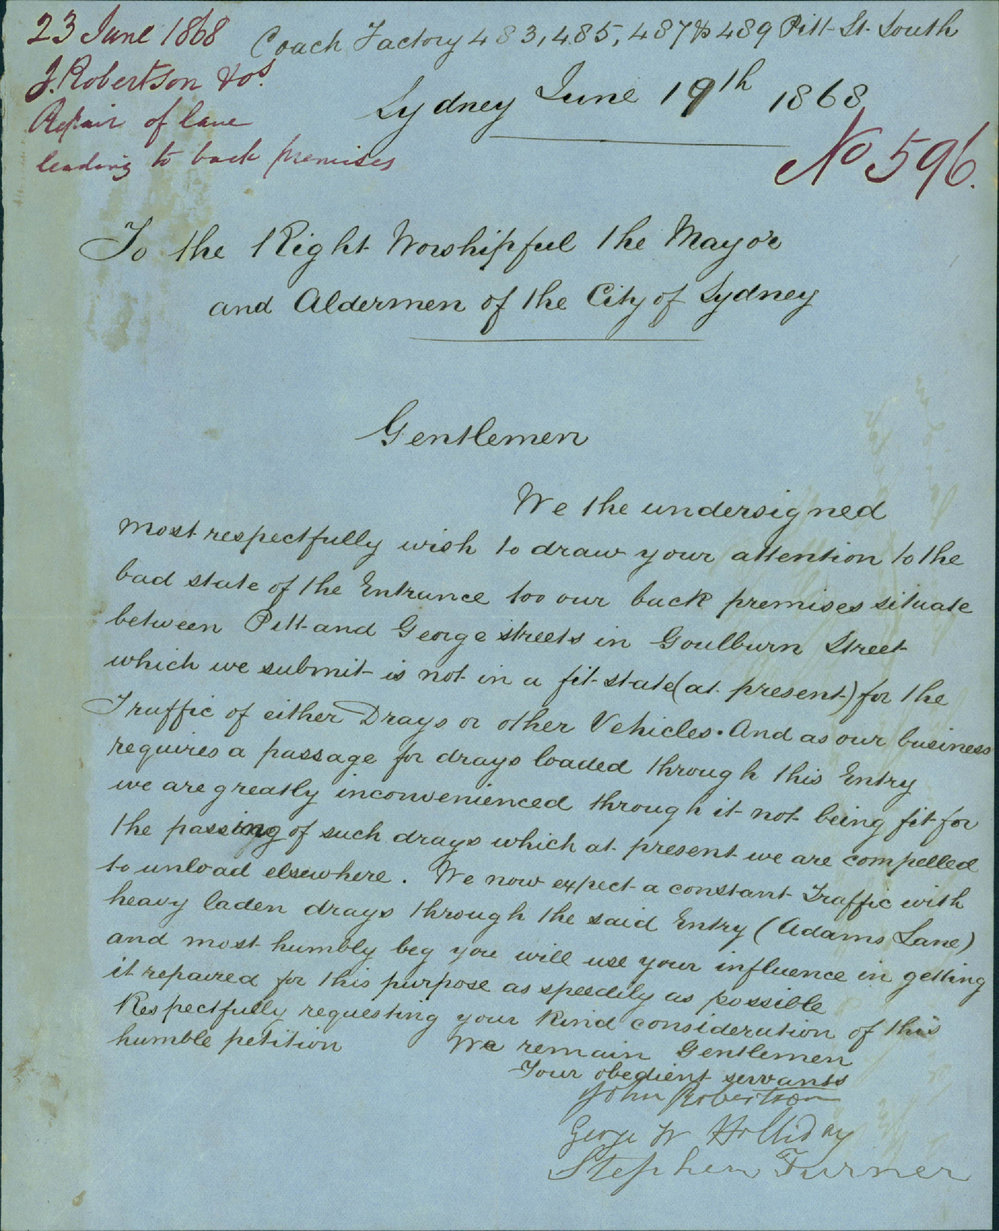 23 June 1868
J. Robertson & os.
Repair of lane
leading to back premises
Coach Factory 483, 485, 487 & 489 Pitt St. South
Sydney June 19th 1868
No 596.
To the Right Worshipful the Mayor
and Aldermen of the City of Sydney
Gentlemen
We the undersigned
most respectfully wish to draw your attention to the
bad state of the Entrance too our back premises situate
between Pitt and George streets in Goulburn Street
which we submit is not in a fit state (at present) for the
Traffic of either Drays or other Vehicles. And as our business
requires a passage for drays loaded through this Entry
we are greatly inconvenienced through it not being fit for
the passing of such drays which at present we are compelled
to unload elsewhere. We now expect a constant Traffic with
heavy laden drays through the said Entry (Adams Lane)
and most humbly beg you will use your influence in getting
it repaired for this purpose as speedily as possible
Respectfully requesting your kind consideration of this
humble petition We remain Gentlemen
Your obedient servants
John Robertson
George W Holliday
Stephen Turner